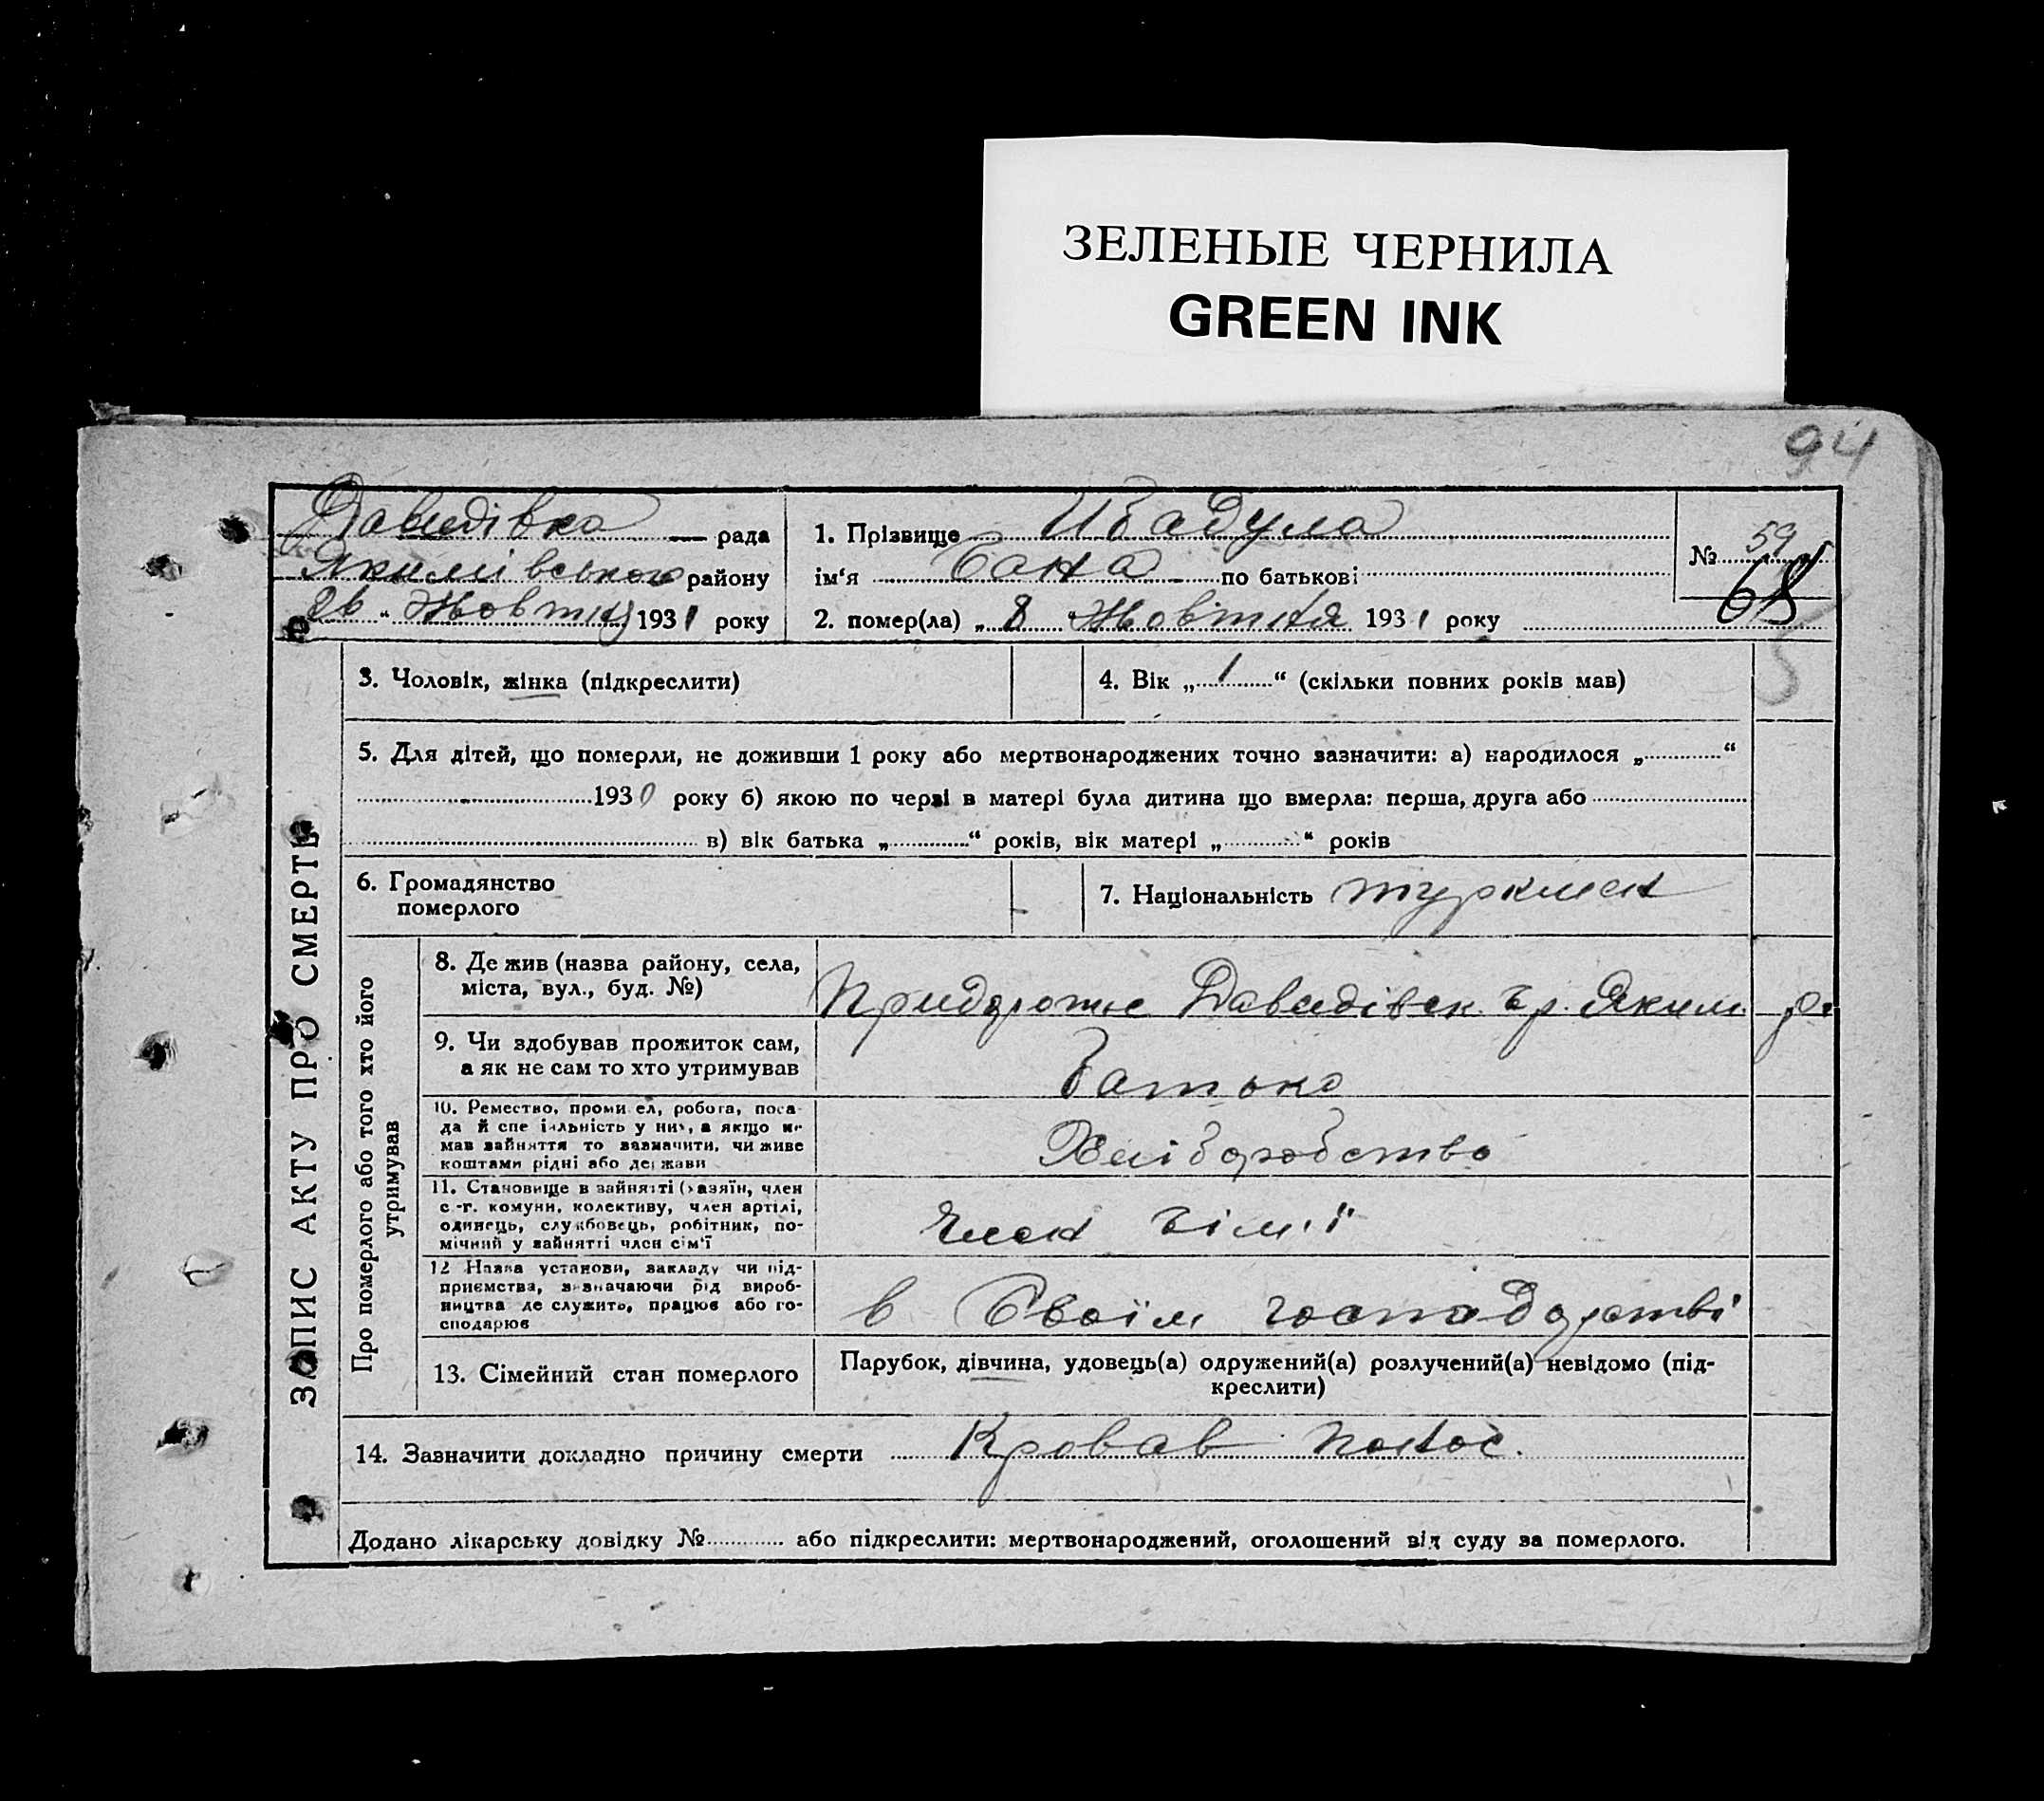 ЗЕЛЕНЫЕ ЧЕРНИЛА
GREEN INK
94
Давидівка рада
Якимівського району
26 " Жовтня 1931 року
1. Прізвище Ибадула
ім'я Сана по батькові
2. помер(ла) „ 8 " Жовтня 1931 року
№ 59
68
ЗАПИС АКТУ ПРО СМЕРТЬ
3. Чоловік, жінка (підкреслити)
4. Вік „ 1 “ (скільки повних років мав)
5. Для дітей, що померли, не доживши 1 року або мертвонароджених точно зазначити: а) народилося „ “
1930 року б) якою по черзі в матері була дитина що вмерла: перша, друга або
в) вік батька „ “ років, вік матері „ “ років
6. Громадянство
померлого
7. Національність туркмен
Про померлого або того хто його
утримував
8. Де жив (назва району, села,
міста, вул., буд. №)
Придорожнє Давидівск. ср. Яким. р.
9. Чи здобував прожиток сам,
а як не сам то хто утримував
Батько
10. Ремество, проми ел, робота, поса-
да й спе іальність у ни, а якщо не
мав зайняття то зазначити, чи живе
коштами рідні або держави
Хліборобство
11. Становище в зайнятті (хазяїн, член
с.-г. комуни, колективу, член артілі,
одинець, службовець, робітник, по-
мічний у зайнятті член сім'ї
Член сім'ї
12 Назва установи, закладу чи під-
приємства, зазначаючи рід вироб-
ництва де служить, працює або го-
сподарює
в Своїм господарстві
13. Сімейний стан померлого
Парубок, дівчина, удовець(а) одружений(а) розлучений(а) невідомо (під-
креслити)
14. Зазначити докладно причину смерти Кровав понос.
Додано лікарську довідку № або підкреслити: мертвонароджений, оголошений від суду за померлого.